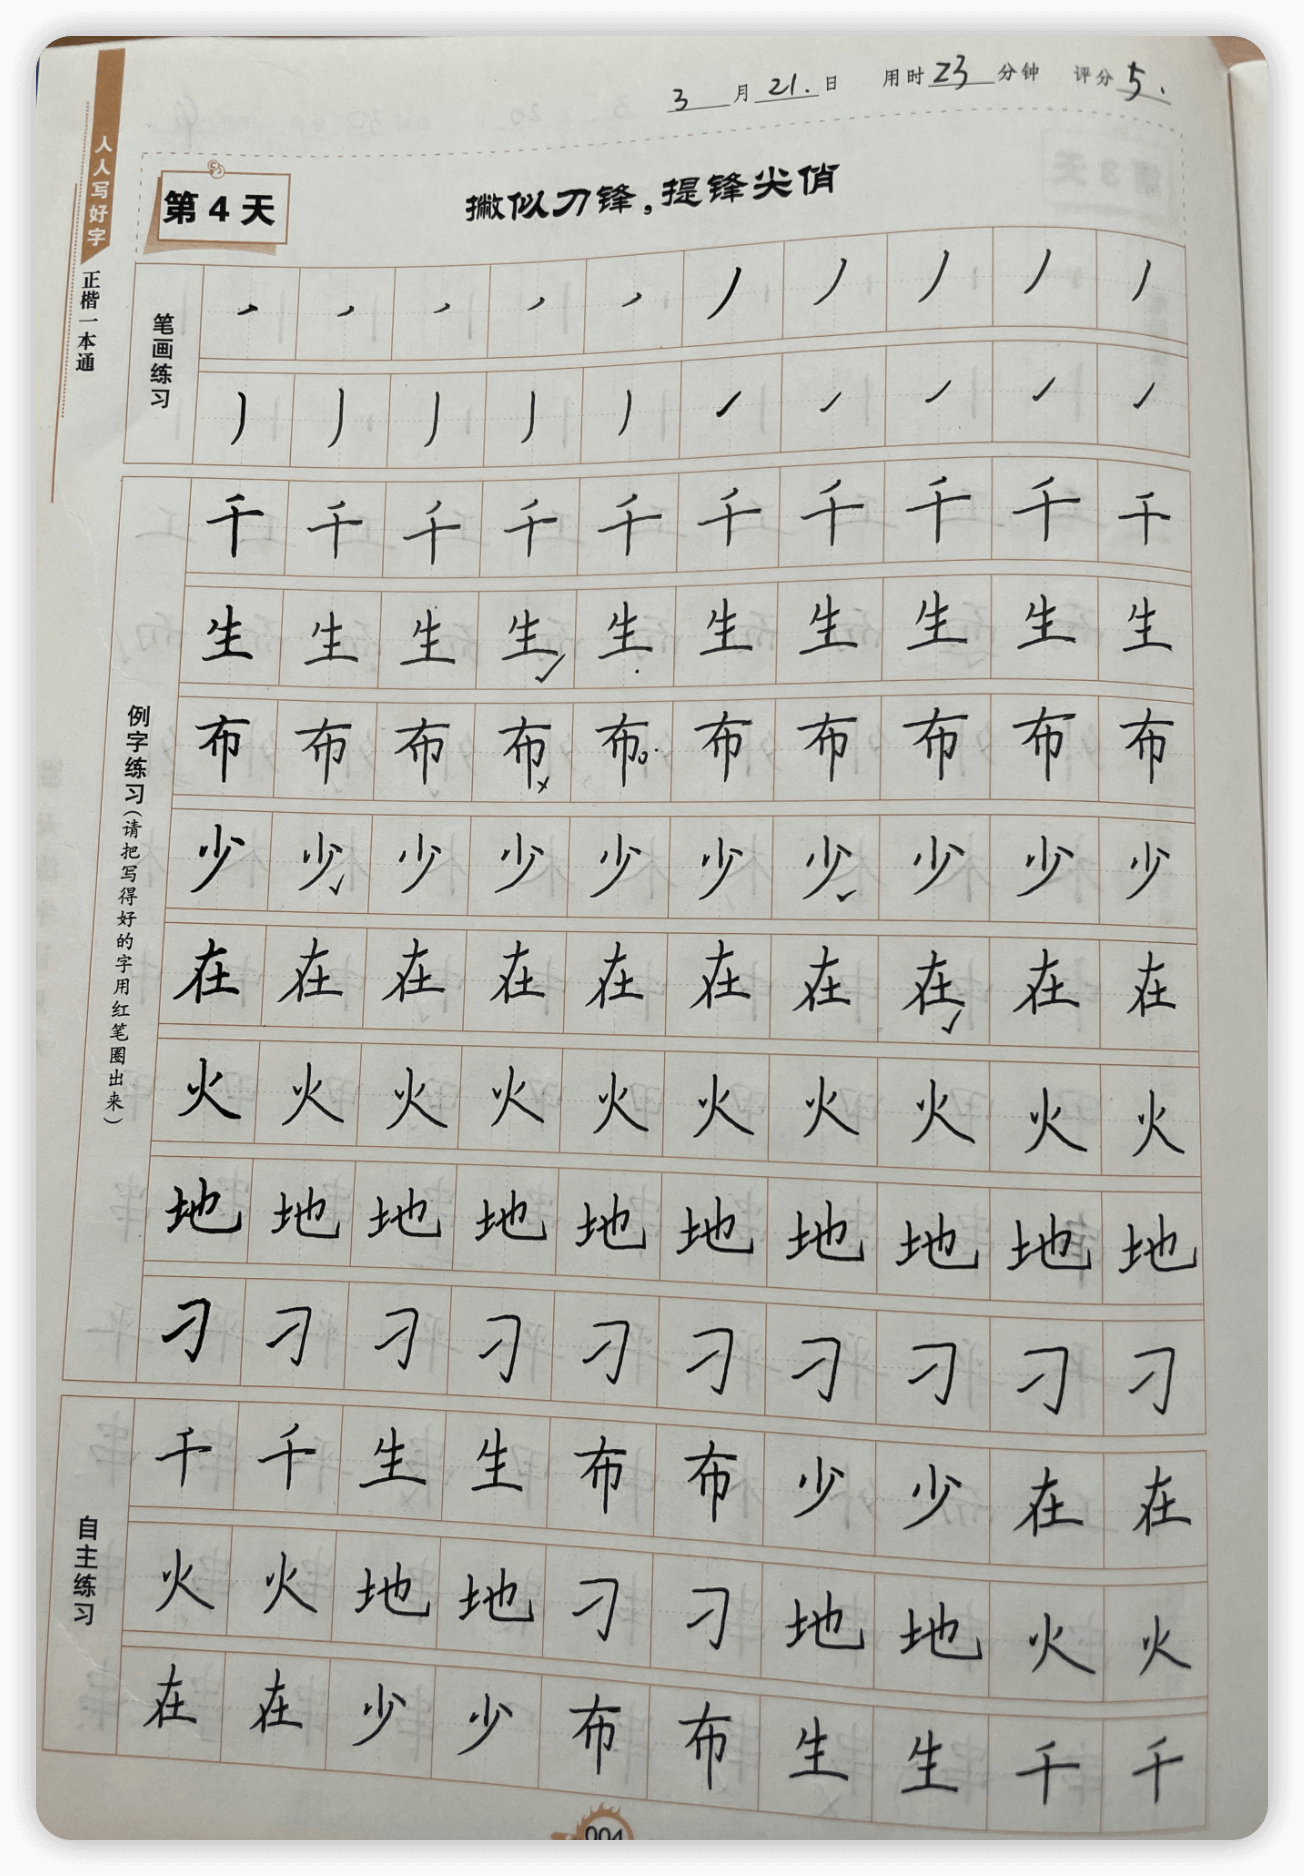 3月21.日 用时23分钟 评分5.
人人写好字
正楷一本通
第4天
撇似刀锋，提锋尖俏
笔画练习
例字练习（请把写得好的字用红笔圈出来）
千千千千千千千千千千
生生生生生生生生生生
布布布布布布布布布布
少少少少少少少少少少
在在在在在在在在在在
火火火火火火火火火火
地地地地地地地地地地
刁刁刁刁刁刁刁刁刁刁
自主练习
千千生生布布少少在在
火火地地刁刁地地火火
在在少少布布生生千千
004